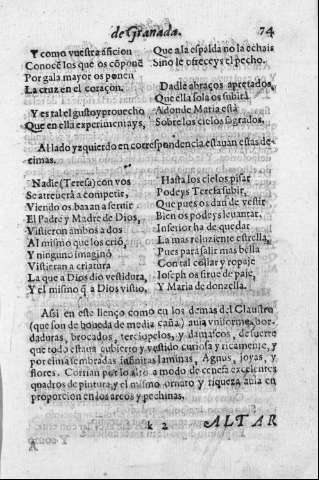 de Granada. 74
Y como vuestra aficion
Conocẽ los que os cõponẽ
Por gala mayor os ponen
La cruz en el coraçon.
Y es tal el gusto y prouecho
Que en ella experimentays,
Que a la espalda no la echais
Sino le ofreceys el pecho.
Dadle abraços apretados,
Que ella sola os subirà
Adonde Maria està
Sobre los cielos sagrados.
Al lado yzquierdo en correspondencia estauan estas de-
cimas.
Nadie (Teresa) con vos
Se atreuerà a competir,
Viendo os baxan a seruir
El Padre y Madre de Dios,
Vistieron ambos a dos
Al mismo que los criò,
Y ninguno imaginò
Vistieran a criatura
La que a Dios diò vestidura,
Y el mismo q̃ a Dios vistio,
Hasta los cielos pisar
Podeys Teresa subir,
Que pues os dan de vestir
Bien os podeys leuantar,
Inferior ha de quedar
La mas reluziente estrella,
Pues para salir mas bella
Con tal collar y ropaje
Ioseph os sirue de paje,
Y Maria de donzella.
Assi en este lienço como en los demas del Claustro
(que son de boueda de media caña) auia vniforme bor-
daduras, brocados, terciopelos, y damascos, de suerte
que todo estaua cubierto y vestido curiosa y ricamente, y
por cima sembradas infinitas laminas, Agnus, joyas, y
flores. Corrian por lo alto a modo de cenefa excelentes
quadros de pintura, y el mismo ornato y riqueza auia en
proporcion en los arcos y pechinas.
k 2 ALTAR